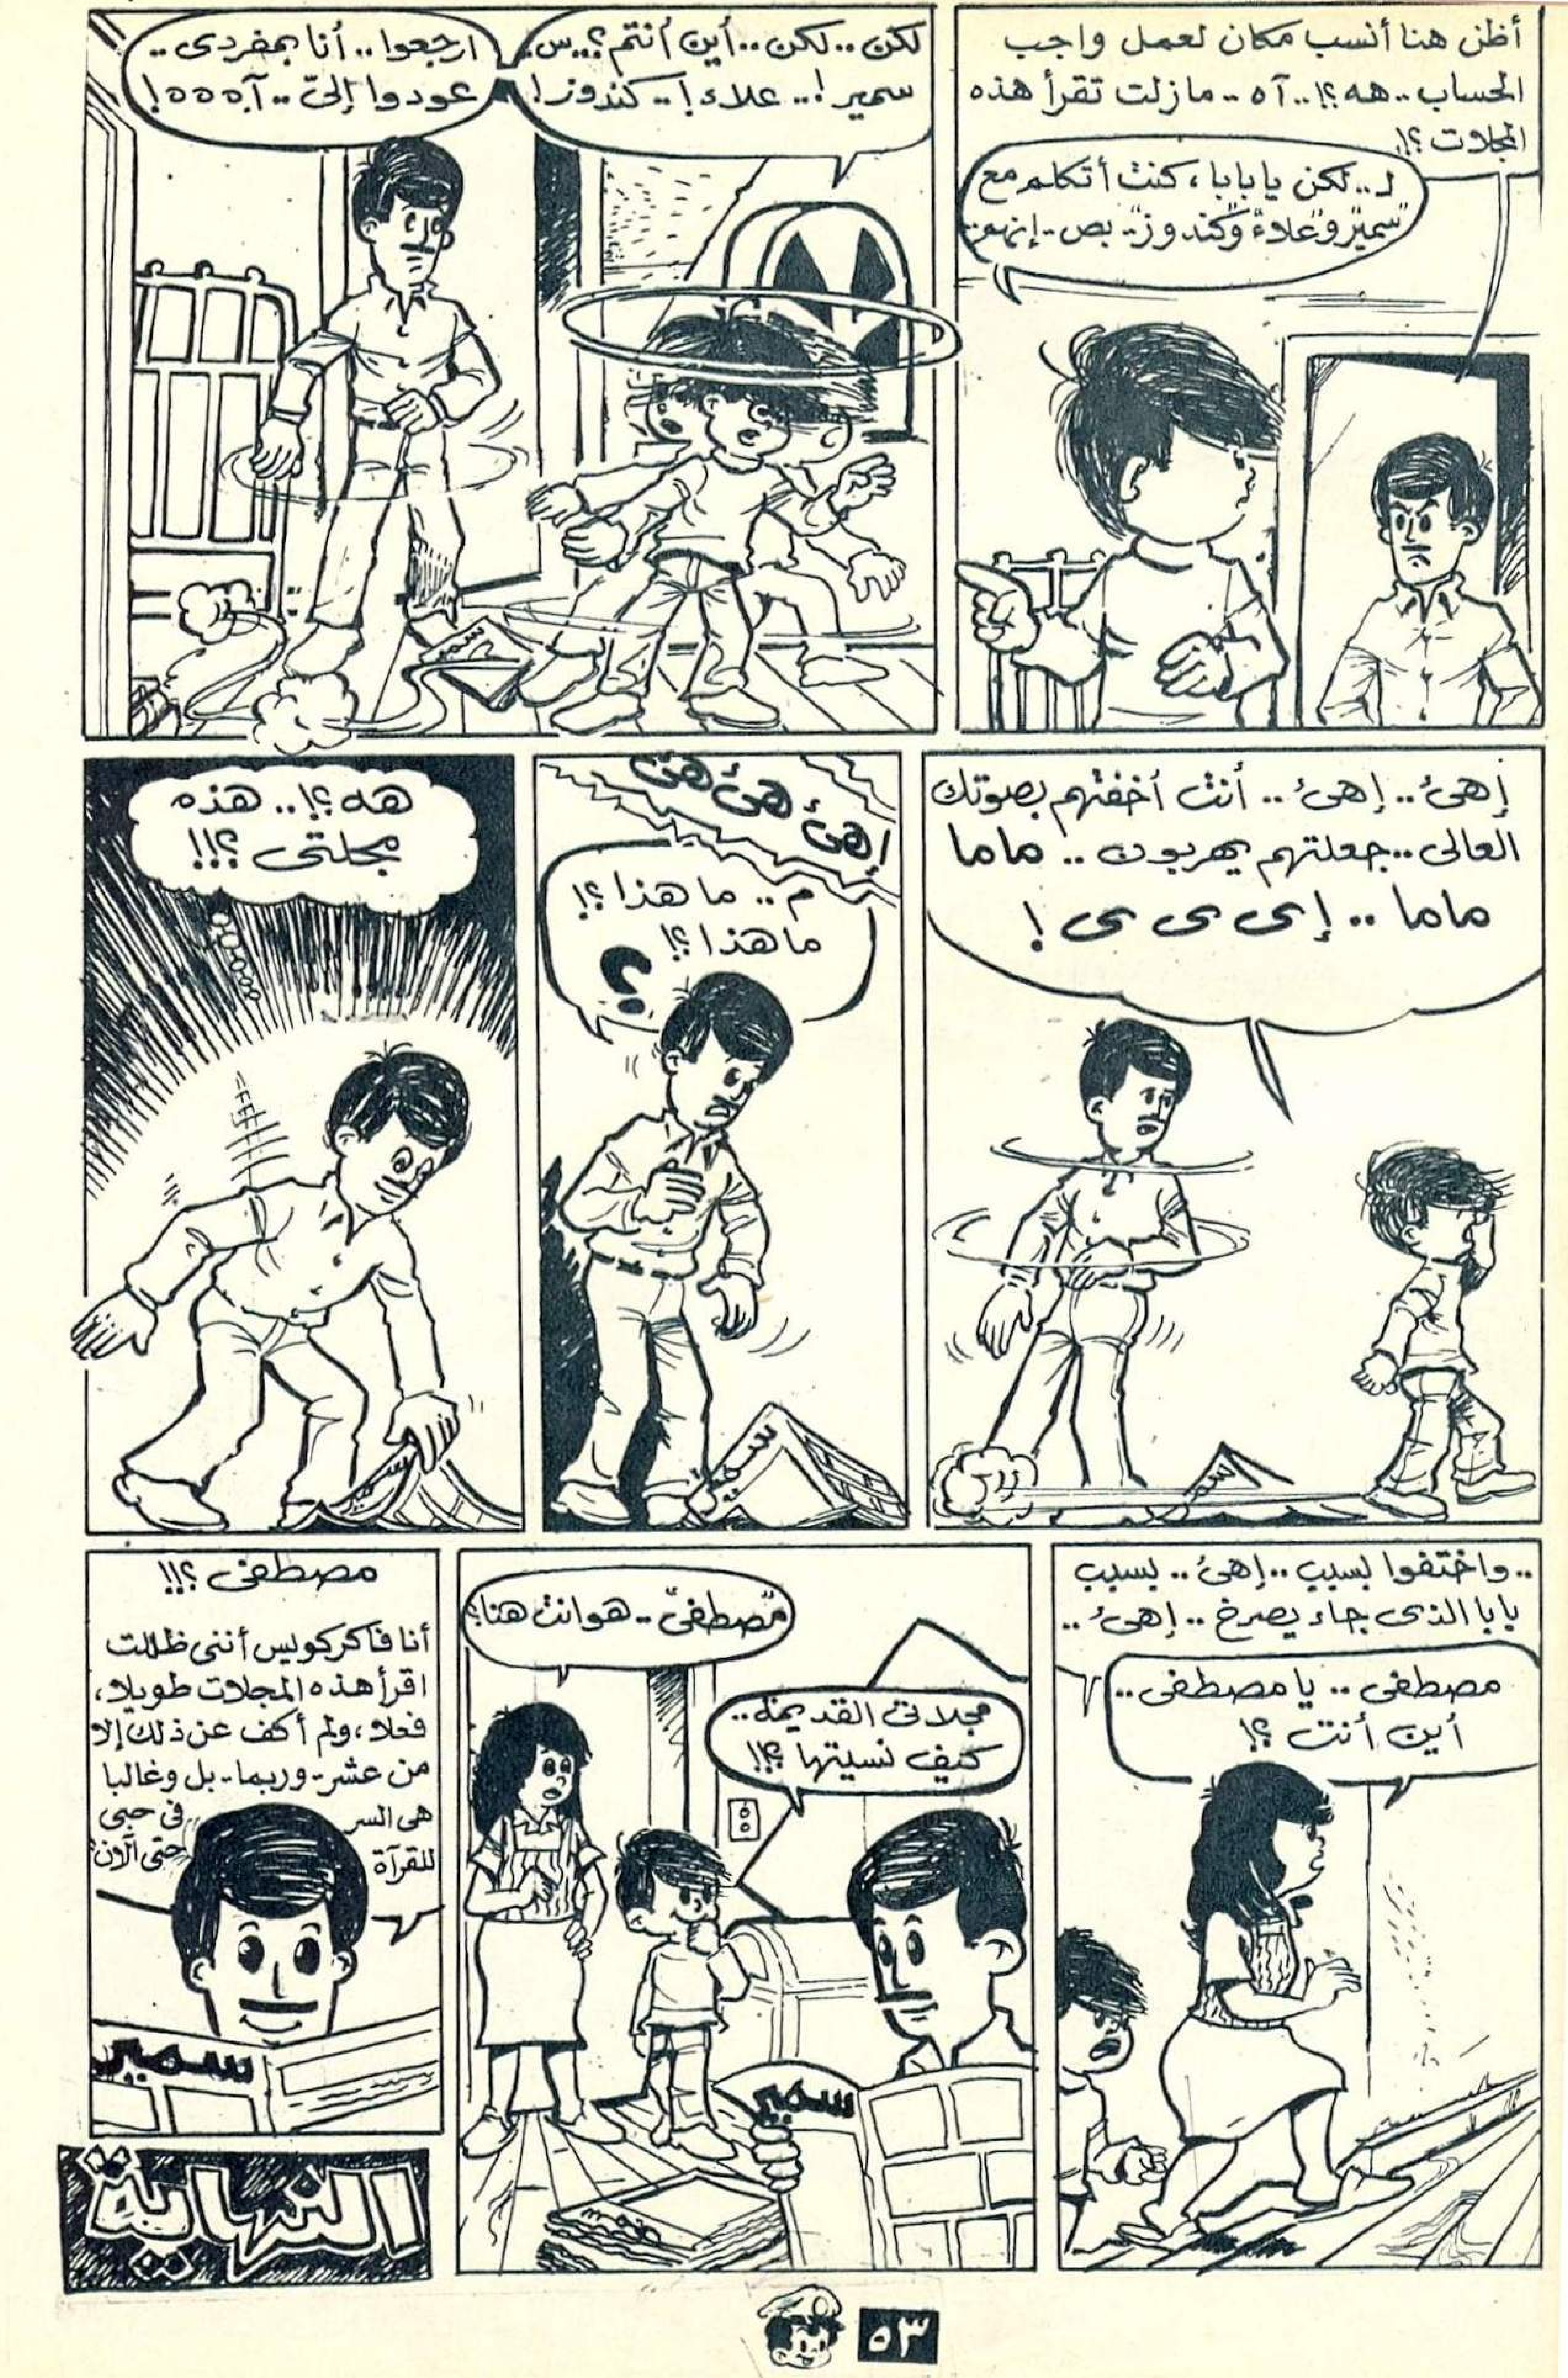 أظن هنا أنسب مكان لعمل واجب
الحساب.. هه؟!.. آه.. مازلت تقرأ هذه
المجلات؟!
لـ.. لكن يا بابا، كنت أتكلم مع
"سمير" و"علاء" و"كندوز".. بص.. إنهم..
لكن.. لكن.. أين أنتم؟.. س..
سمير!.. علاء!.. كندوز!
ارجعوا.. أنا بمفردى..
عودوا إلىّ.. آه ه ه ه!
سمير
إهئ.. إهئ.. أنت أخفتهم بصوتك
العالى.. جعلتهم يهربون.. ماما
ماما.. إى ى ى ى!
سمير
إهئ هئ هئ
م.. ما هذا؟!
ما هذا؟!
؟
سمير
هه؟!.. هذه
مجلتى؟!!
سمير
.. واختفوا بسبب.. إهئ.. بسبب
بابا الذى جاء يصرخ.. إهئ..
مصطفى.. يا مصطفى..
أين أنت؟!
مصطفى.. هو انت هنا؟
مجلاتى القديمة..
كيف نسيتها؟!!
سمير
مصطفى؟!!
أنا فاكر كويس أننى ظللت
اقرأ هذه المجلات طويلا،
فعلا، ولم أكف عن ذلك إلا
من عشر.. وربما.. بل وغالبا
هى السر فى حبى
للقرآة حتى الآن
سمير
النهاية
٥٣